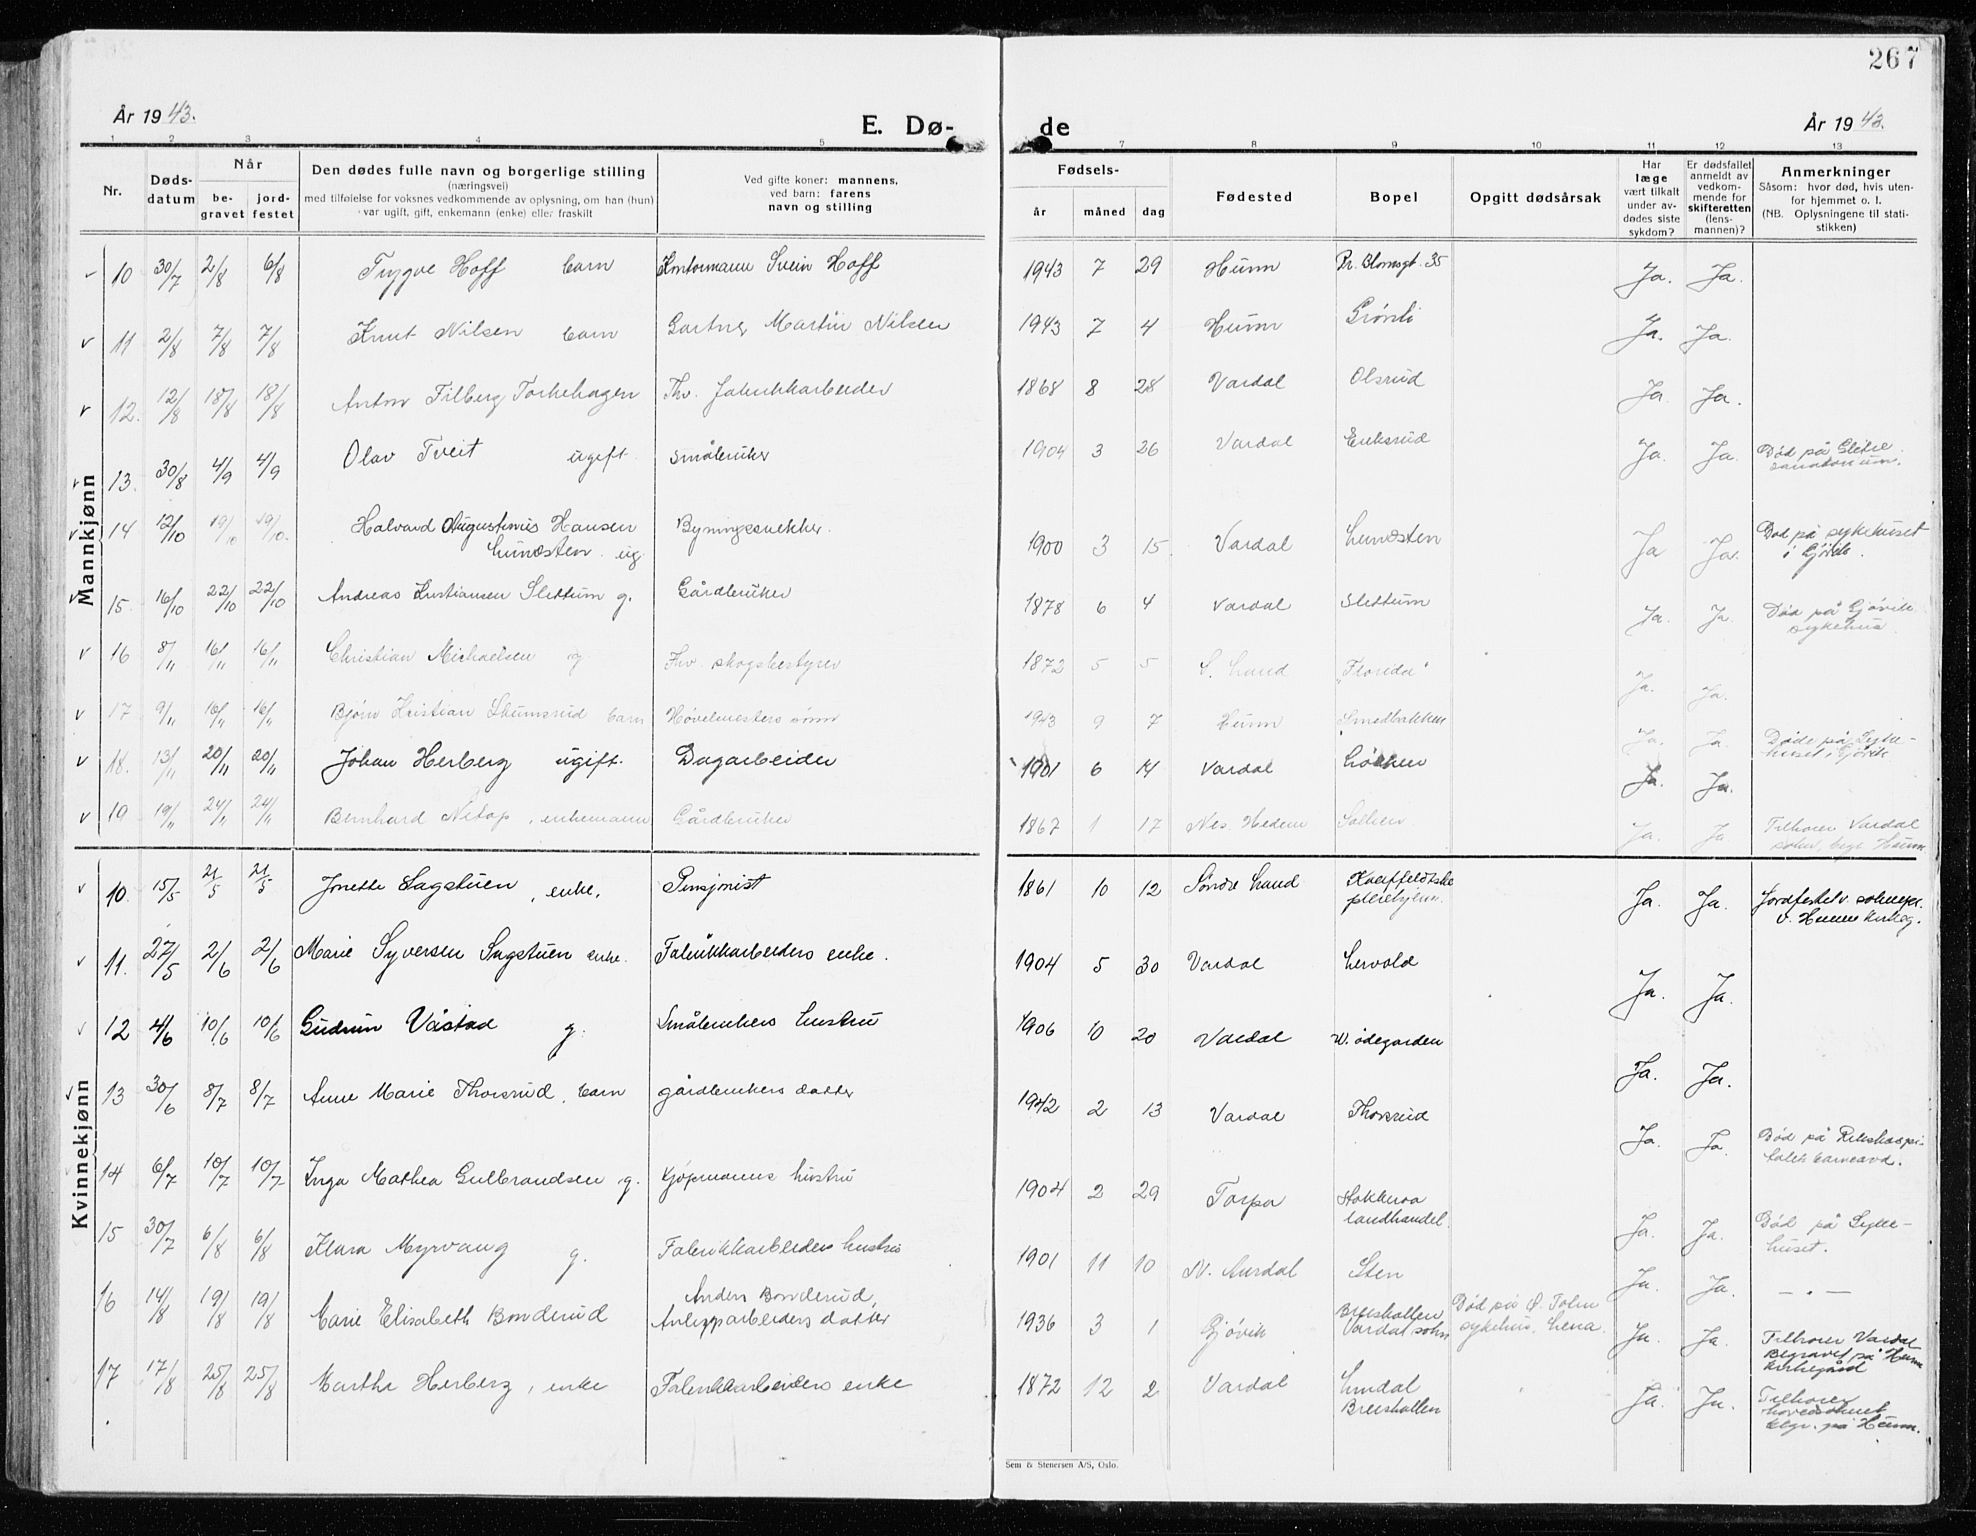 267
År 1943.
E. Dø-
de
År 1943.
1 2 3 4 5 7 8 9 10 11 12 13
Nr.
Døds-
datum
Når
be-
gravet
jord-
festet
Den dødes fulle navn og borgerlige stilling
(næringsvei)
med tilføielse for voksnes vedkommende av oplysning, om han (hun)
var ugift, gift, enkemann (enke) eller fraskilt
Ved gifte koner: mannens,
ved barn: farens
navn og stilling
Fødsels-
år måned dag
Fødested
Bopel
Opgitt dødsårsak
Har
læge
vært tilkalt
under av-
dødes siste
sykdom?
Er dødsfallet
anmeldt av
vedkom-
mende for
skifteretten
(lens-
mannen)?
Anmerkninger
Såsom: hvor død, hvis uten-
for hjemmet o. l.
(NB. Oplysningene til stati-
stikken)
Mannkjønn
v 10 30/7 2/8 6/8 Trygve Hoff barn Kontormann Svein Hoff 1943 7 29 Hunn Pr. Blomsgt. 35 Ja. Ja.
v 11 2/8 7/8 7/8 Knut Nilsen barn Gartner Martin Nilsen 1943 7 4 Hunn Grønli Ja. Ja.
v 12. 12/8 18/8 18/8 Anton Filberg Torkehagen Fhv. Fabrikkarbeider 1868 8 28 Vardal Olsrud Ja. Ja.
v 13. 30/8 4/9 4/9 Olav Tveit ugift. småbruker 1904 3 26 Vardal Eriksrud Ja. Ja. Død på
sanatorium.
v 14 12/10 19/10 19/10. Halvard Augustinus Hansen Bygningssnekker. 1900 3 15. Vardal Lundsten Ja Ja. Død på sykehuset
Lundsten. ug i Gjøvik.
v 15. 16/10 22/10 22/10 Andreas Kristiansen Slettum g. Gårdbruker 1878 6 4 Vardal Slettum Ja. Ja Død på Gjøvik
sykehus.
v 16 8/11 16/11 16/11 Christian Michaelsen g. Fhv. skogsbestyrer 1872 5 5 S. Land „Florida" Ja. Ja.
v 17 9/11 16/11 16/11 Bjørn Kristian Skumsrud barn Høvelmesters sønn 1943 9 7 Hunn Smedbakken Ja. Ja. Døde på Syke-
huset i Gjøvik
v 18. 13/11 20/11 20/11 Johan Herberg ugift. Dagarbeider 1901 6 14 Vardal Løkken Ja. Ja.
v 19 19/11 24/11 24/11 Bernhard Netop, enkemann Gårdbruker 1867 1 17 Nes. Hedem Ja. Ja Tilhører Vardal
sokn, begr. Hunn.
Kvinnekjønn
v 10. 15/5 21/5 21/5 Jonette Sagstuen, enke, Pensjonist 1861 10 12 Søndre Land
pleiehjem. Ja. Ja. Jordfestet v. sokneprt.
v. Hunn kirkeg.
v 11. 27/5 2/6 2/6 Marie Syversen Sagstuen enke. Fabrikkarbeiders enke. 1904 5 30 Vardal Lervold Ja. Ja.
v 12 4/6 10/6 10/6 Gudrun Våstad g. Småbrukers hustru 1906 10 20 Vardal W. ødegarden Ja. Ja.
v 13 30/6 8/7 8/7 Anne Marie Thorsrud, barn gårdbrukers datter 1942 2 13 Vardal Thorsrud Ja. Ja. Død på Rikshospi-
talets barneavd.
14 6/7 10/7 10/7 Inga Mathea Gulbrandsen g. Kjøpmanns hustru 1904 2 29 Torpa Stokkeroa
landhandel. Ja. Ja. Død på Syke-
huset.
15 30/7 6/8 6/8 Klara Myrvang g. Fabrikkarbeiders hustru 1901 11 10 N. Aurdal Sten Ja. Ja. — „ —
16 14/8 19/8 19/8 Marie Elisabeth Bonderud Anders Bonderud,
Anleggarbeiders datter 1936 3 1 Gjøvik Breiskallen
Vardal sokn Død på Ø. Toten
sykehus, Lena. Ja. Ja. Tilhører Vardal
Begravet på Hunn
kirkegård
17 17/8 25/8 25/8 Marthe Herberg, enke Fabrikkarbeiders enke 1872 12 2 Vardal Lindal
Breiskallen Ja. Ja. Tilhører
hovedsoknet
begr. på Hunn.
Sem & Stenersen A/S, Oslo.